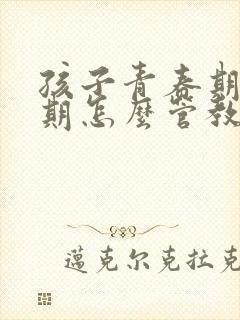 孩子青春期
期怎麽管教
邁克尔克拉克